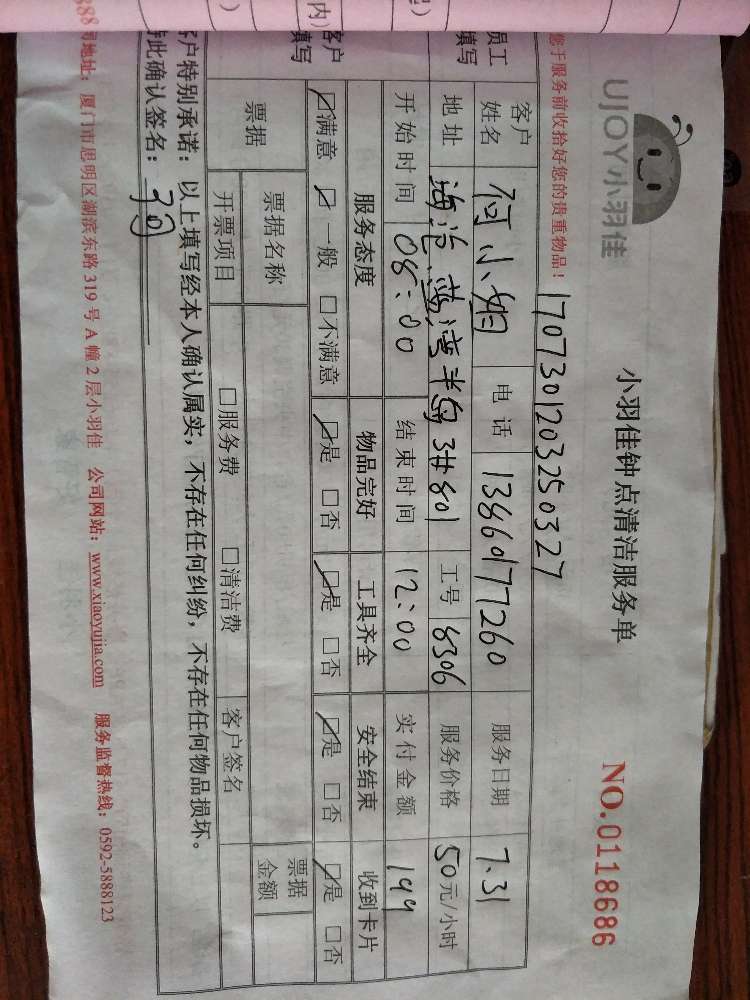 UJOY小羽佳
小羽佳钟点清洁服务单
NO.0118686
您于服务前收拾好您的贵重物品！
170730120325032​7
员工
填写
客户
姓名
何小姐
电话
13860177260
服务日期
7.31
地址
海沧蓝湾半岛3#801
工号
8306
服务价格
50元/小时
开始时间
08:00
结束时间
12:00
实付金额
199
客户
填写
服务态度
物品完好
工具齐全
安全结束
收到卡片
☑满意 ☑一般 □不满意
☑是 □否
☑是 □否
☑是 □否
☑是 □否
票据
票据名称
票据
金额
开票项目
□服务费 □清洁费
客户签名
客户特别承诺：以上填写经本人确认属实，不存在任何纠纷，不存在任何物品损坏。
此确认签名：
司地址：厦门市思明区湖滨东路319号A幢2层小羽佳 公司网站：www.xiaoyujia.com 服务监督热线：0592-5888123